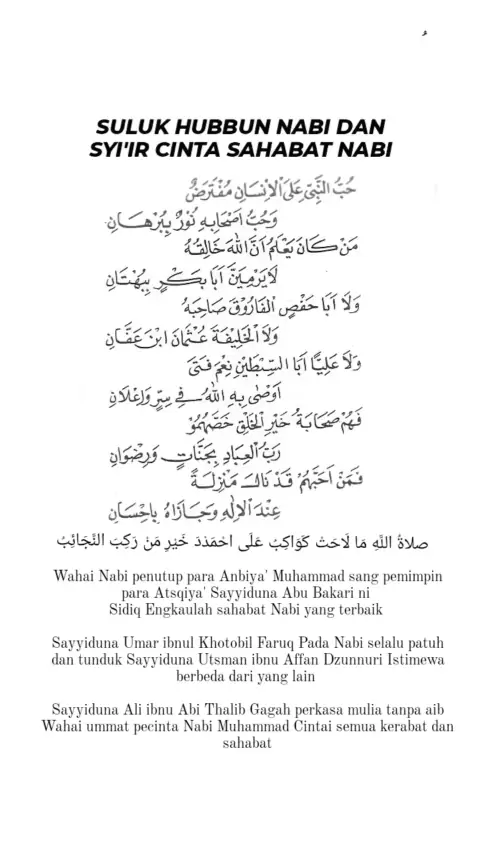 SULUK HUBBUN NABI DAN
SYI'IR CINTA SAHABAT NABI
حُبُّ النَّبِيِّ عَلَى الْإِنْسَانِ مُفْتَرَضٌ
وَحُبُّ اَصْحَابِهِ نُوْرٌ بِبُرْهَانِ
مَنْ كَانَ يَعْلَمُ اَنَّ اللهَ خَالِقُهُ
لَا يَرْمِيَنَّ اَبَا بَكْرٍ بِبُهْتَانِ
وَلَا اَبَا حَفْصٍ الْفَارُوْقَ صَاحِبَهُ
وَلَا الْخَلِيْفَةَ عُثْمَانَ ابْنَ عَفَّانِ
وَلَا عَلِيًّا اَبَا السِّبْطَيْنِ نِعْمَ فَتَى
اَوْصَى بِهِ اللهُ فِي سِرٍّ وَاِعْلَانِ
فَهُمْ صَحَابَةُ خَيْرِ الْخَلْقِ خَصَّهُمُوْ
رَبُّ الْعِبَادِ بِجَنَّاتٍ وَرِضْوَانِ
فَمَنْ اَحَبَّهُمْ قَدْ نَالَ مَنْزِلَةً
عِنْدَ الْإِلٰهِ وَجَازَاهُ بِاِحْسَانِ
صلاةُ اللهِ مَا لَاحَتْ كَوَاكِبُ عَلَى احْمَدَدَ خَيْرِ مَنْ رَكِبَ النَّجَائِبُ
Wahai Nabi penutup para Anbiya' Muhammad sang pemimpin
para Atsqiya' Sayyiduna Abu Bakari ni
Sidiq Engkaulah sahabat Nabi yang terbaik
Sayyiduna Umar ibnul Khotobil Faruq Pada Nabi selalu patuh
dan tunduk Sayyiduna Utsman ibnu Affan Dzunnuri Istimewa
berbeda dari yang lain
Sayyiduna Ali ibnu Abi Thalib Gagah perkasa mulia tanpa aib
Wahai ummat pecinta Nabi Muhammad Cintai semua kerabat dan
sahabat